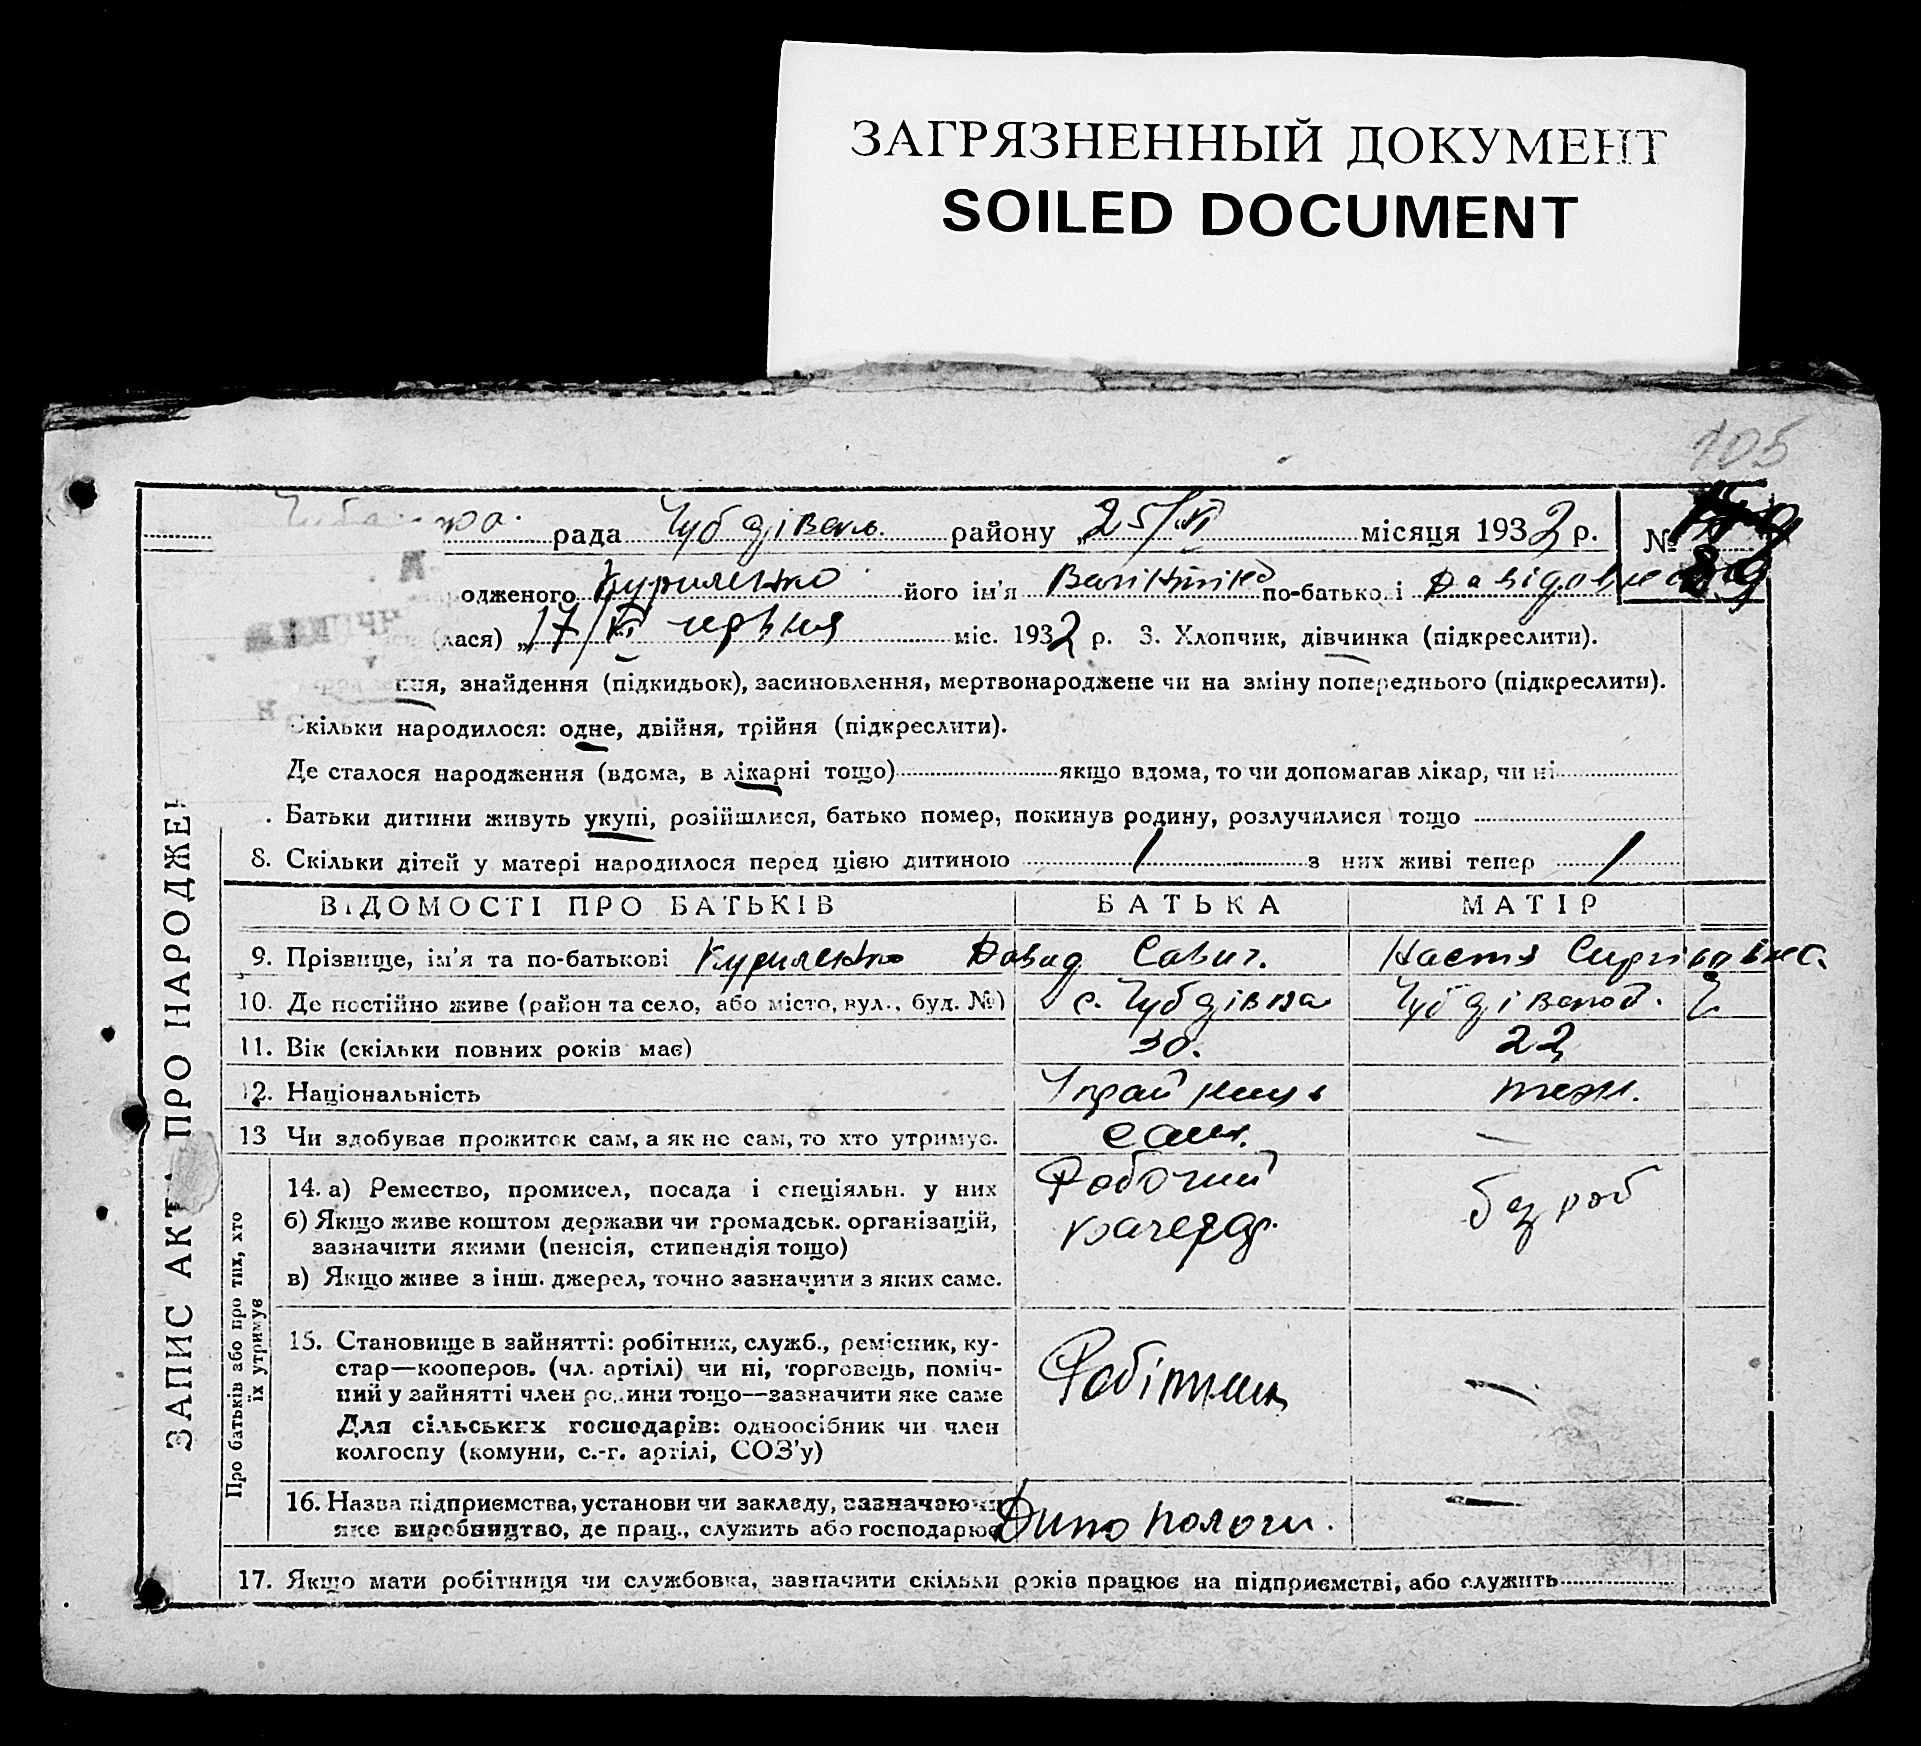 ЗАГРЯЗНЕННЫЙ ДОКУМЕНТ
SOILED DOCUMENT
105
рада Чубдівськ. району „25/VI місяця 1932 р. №
89
одженого Куриленко його ім'я Валентина по-батькові Давідовна
(лася) „17/VI червня міс. 1932 р. 3. Хлопчик, дівчинка (підкреслити).
ння, знайдення (підкидьок), засиновлення, мертвонароджене чи на зміну попереднього (підкреслити).
Скільки народилося: одне, двійня, трійня (підкреслити).
Де сталося народження (вдома, в лікарні тощо) якщо вдома, то чи допомагав лікар, чи ні
Батьки дитини живуть укупі, розійшлися, батько помер, покинув родину, розлучилися тощо
8. Скільки дітей у матері народилося перед цією дитиною 1 з них живі тепер 1
ВІДОМОСТІ ПРО БАТЬКІВ БАТЬКА МАТІР
9. Прізвище, ім'я та по-батькові Куриленко Давид Савич. Настя
10. Де постійно живе (район та село, або місто, вул., буд. №) с. Чубдівка
11. Вік (скільки повних років має) 30. 22
12. Національність Украйнець теж.
13 Чи здобуває прожиток сам, а як не сам, то хто утримує. сам. —
14. а) Ремество, промисел, посада і спеціяльн. у них Робочий
б) Якщо живе коштом держави чи громадськ. організацій, кочегар. без роб
зазначити якими (пенсія, стипендія тощо)
в) Якщо живе з інш. джерел, точно зазначити з яких саме.
15. Становище в зайнятті: робітник, служб., ремісник, ку-
стар—кооперов. (чл. артілі) чи ні, торговець, поміч-
ний у зайнятті член родини тощо—зазначити яке саме Робітник —
Для сільських господарів: одноосібник чи член
колгоспу (комуни, с.-г. артілі, СОЗ'у)
16. Назва підприємства, установи чи закладу, зазначаючи
яке виробництво, де прац., служить або господарює —
17. Якщо мати робітниця чи службовка, зазначити скільки років працює на підприємстві, або служить
ЗАПИС АКТ ПРО НАРОДЖЕН
Про батьків або про тих, хто
їх утримує